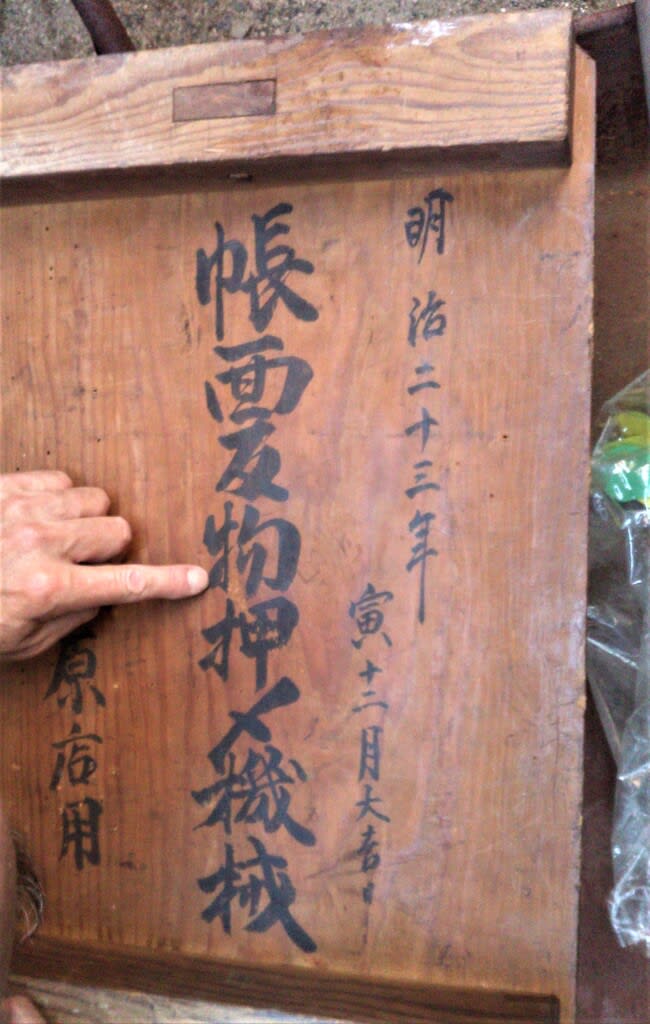 明治二十三年
寅十二月大吉日
帳面反物押〆機械
原店用